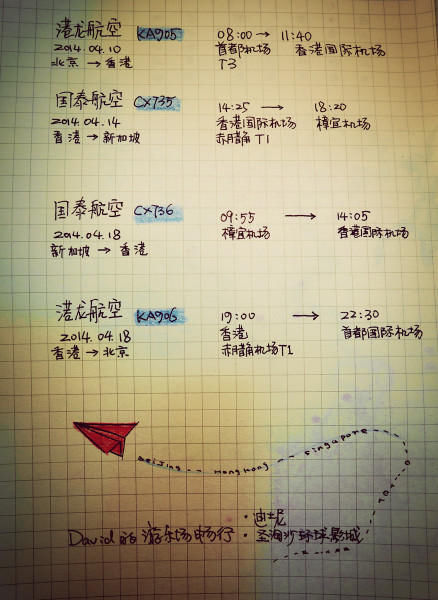 港龙航空 KA905 08:00 → 11:40
2014.04.10 首都机场 香港国际机场
北京 → 香港 T3
国泰航空 CX735 14:25 → 18:20
2014.04.14 香港国际机场 樟宜机场
香港 → 新加坡 赤腊角 T1
国泰航空 CX736 09:55 → 14:05
2014.04.18 樟宜机场 香港国际机场
新加坡 → 香港
港龙航空 KA906 19:00 → 22:30
2014.04.18 香港 首都国际机场
香港 → 北京 赤腊角机场T1
Beijing HongKong Singapore
David的游乐场畅行 · 迪士尼
· 圣淘沙环球影城